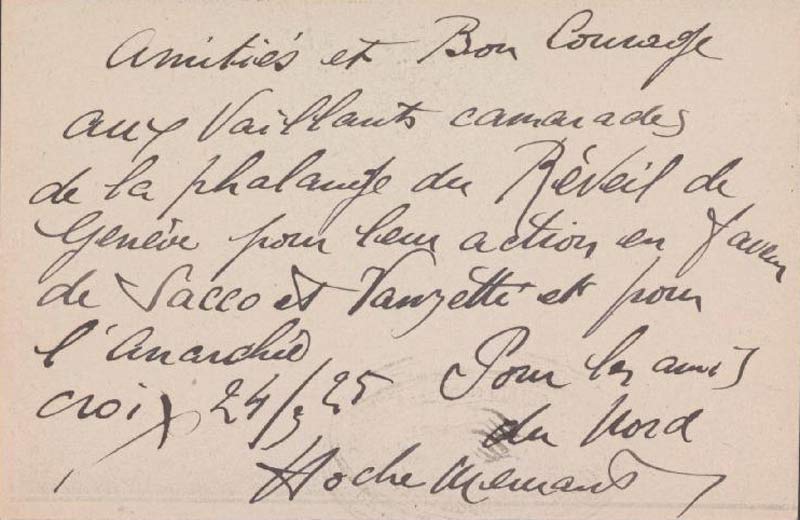 Amitiés et Bon Courage
aux Vaillants camarades
de la phalange du Réveil de
Genève pour leur action en faveur
de Sacco et Vanzetti et pour
l'Anarchie
Pour les amis
Croix 24/3 25
du Nord
Hoche Meurant